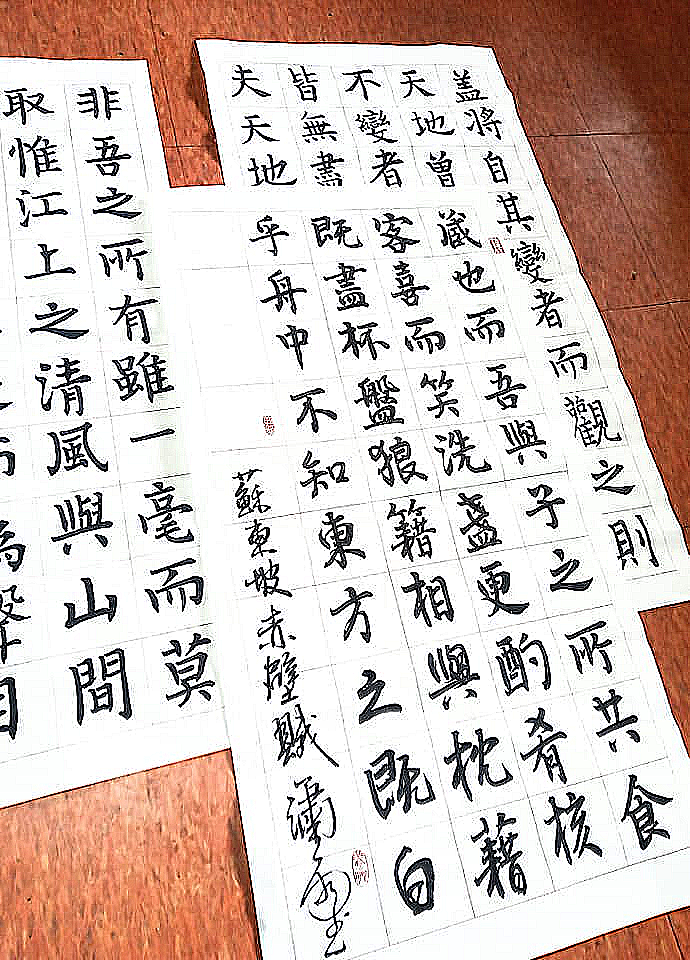 盖將自其變者而觀之則
天地曾
不變者
皆無盡
夫天地
藏也而吾與子之所共食
客喜而笑洗盞更酌肴核
既盡杯盤狼籍相與枕藉
乎舟中不知東方之既白
蘇東坡赤壁賦
非吾之所有雖一毫而莫
取惟江上之清風與山間
為聲目